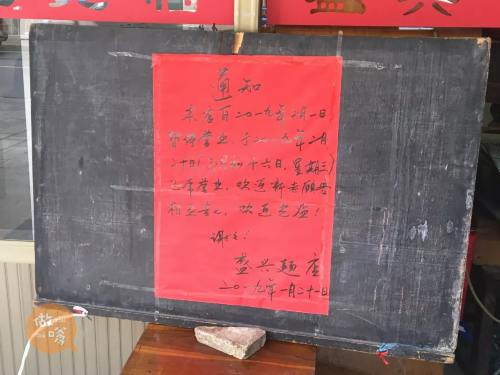 通知
本店自二〇一九年二月一日
暂停营业,于二〇一九年二月
二十日(正月初十六日,星期三)
正常营业,欢迎新老顾客
欢迎光临!
谢谢!
盛兴面店
二〇一九年一月二十一日
做嗲